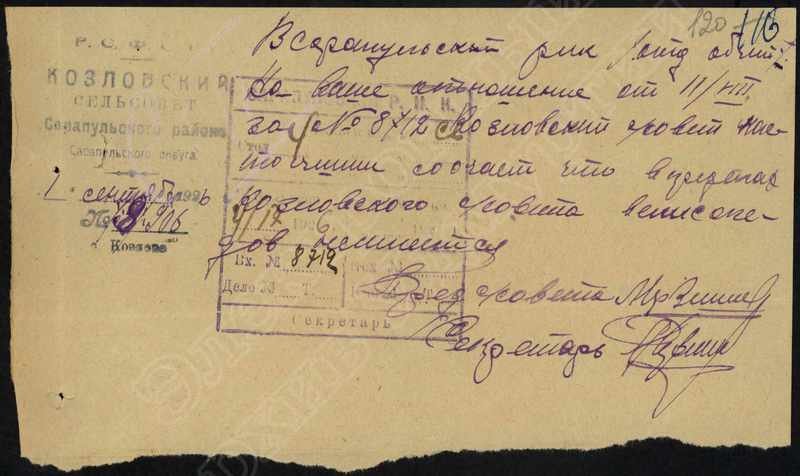 120
116
Р. С. Ф. С. Р.
КОЗЛОВСКИЙ
СЕЛЬСОВЕТ
Сарапульского района
Сарапульского округа
1 сентября 1926
№ 906
с. Козлово
В Сарапульский рик
На ваше отношение от 11/VIII
за № 8712 Козловский совет нас-
тоящим сообчает что в пределах
Козловского совета велосипе-
дов неимеется
Пред совета
Секретарь
Р. И. К.
Стол
1926
Вх. № 8712
Исх. №
Дело № Т.
Секретарь